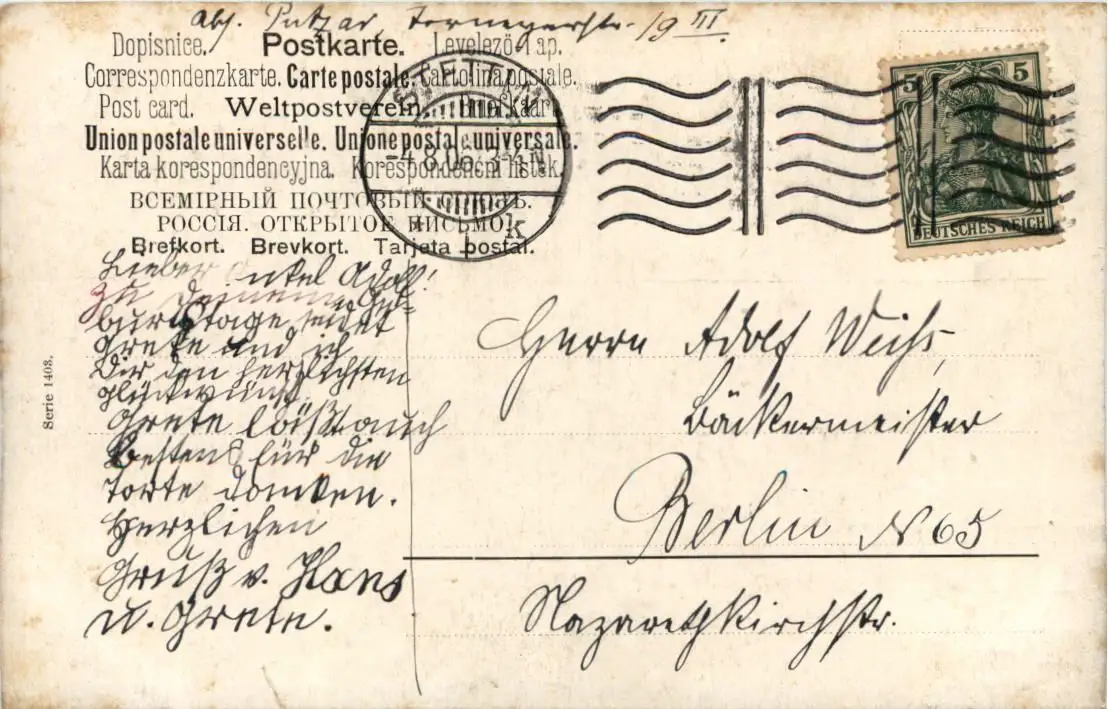 Abs. Putzar, Torneyerstr. 19 III.
Dopisnice. Postkarte. Levelező-Lap.
Correspondenzkarte. Carte postale. Cartolina postale.
Post card. Weltpostverein. Briefkaart
Union postale universelle. Unione postale universale.
Karta korespondencyjna. Korespondenční lístek.
ВСЕМІРНЫЙ ПОЧТОВЫЙ СОЮЗЪ.
РОССІЯ. ОТКРЫТОЕ ПИСЬМО.
Brefkort. Brevkort. Tarjeta postal.
STETTIN
-4.8.06. 3-4 N
1 k
5 5
DEUTSCHES REICH
Lieber Onkel Adolf!
Zu Deinem Ge-
burtstage sendet
Grete und ich
Dir den herzlichsten
Glückwunsch.
Grete läßt auch
Bestens für die
Torte danken.
Herzlichen
Gruß v. Hans
u. Grete.
Herrn Adolf Weihs,
Bäckermeister
Berlin N 65
Nazarethkirchstr.
Serie 1408.